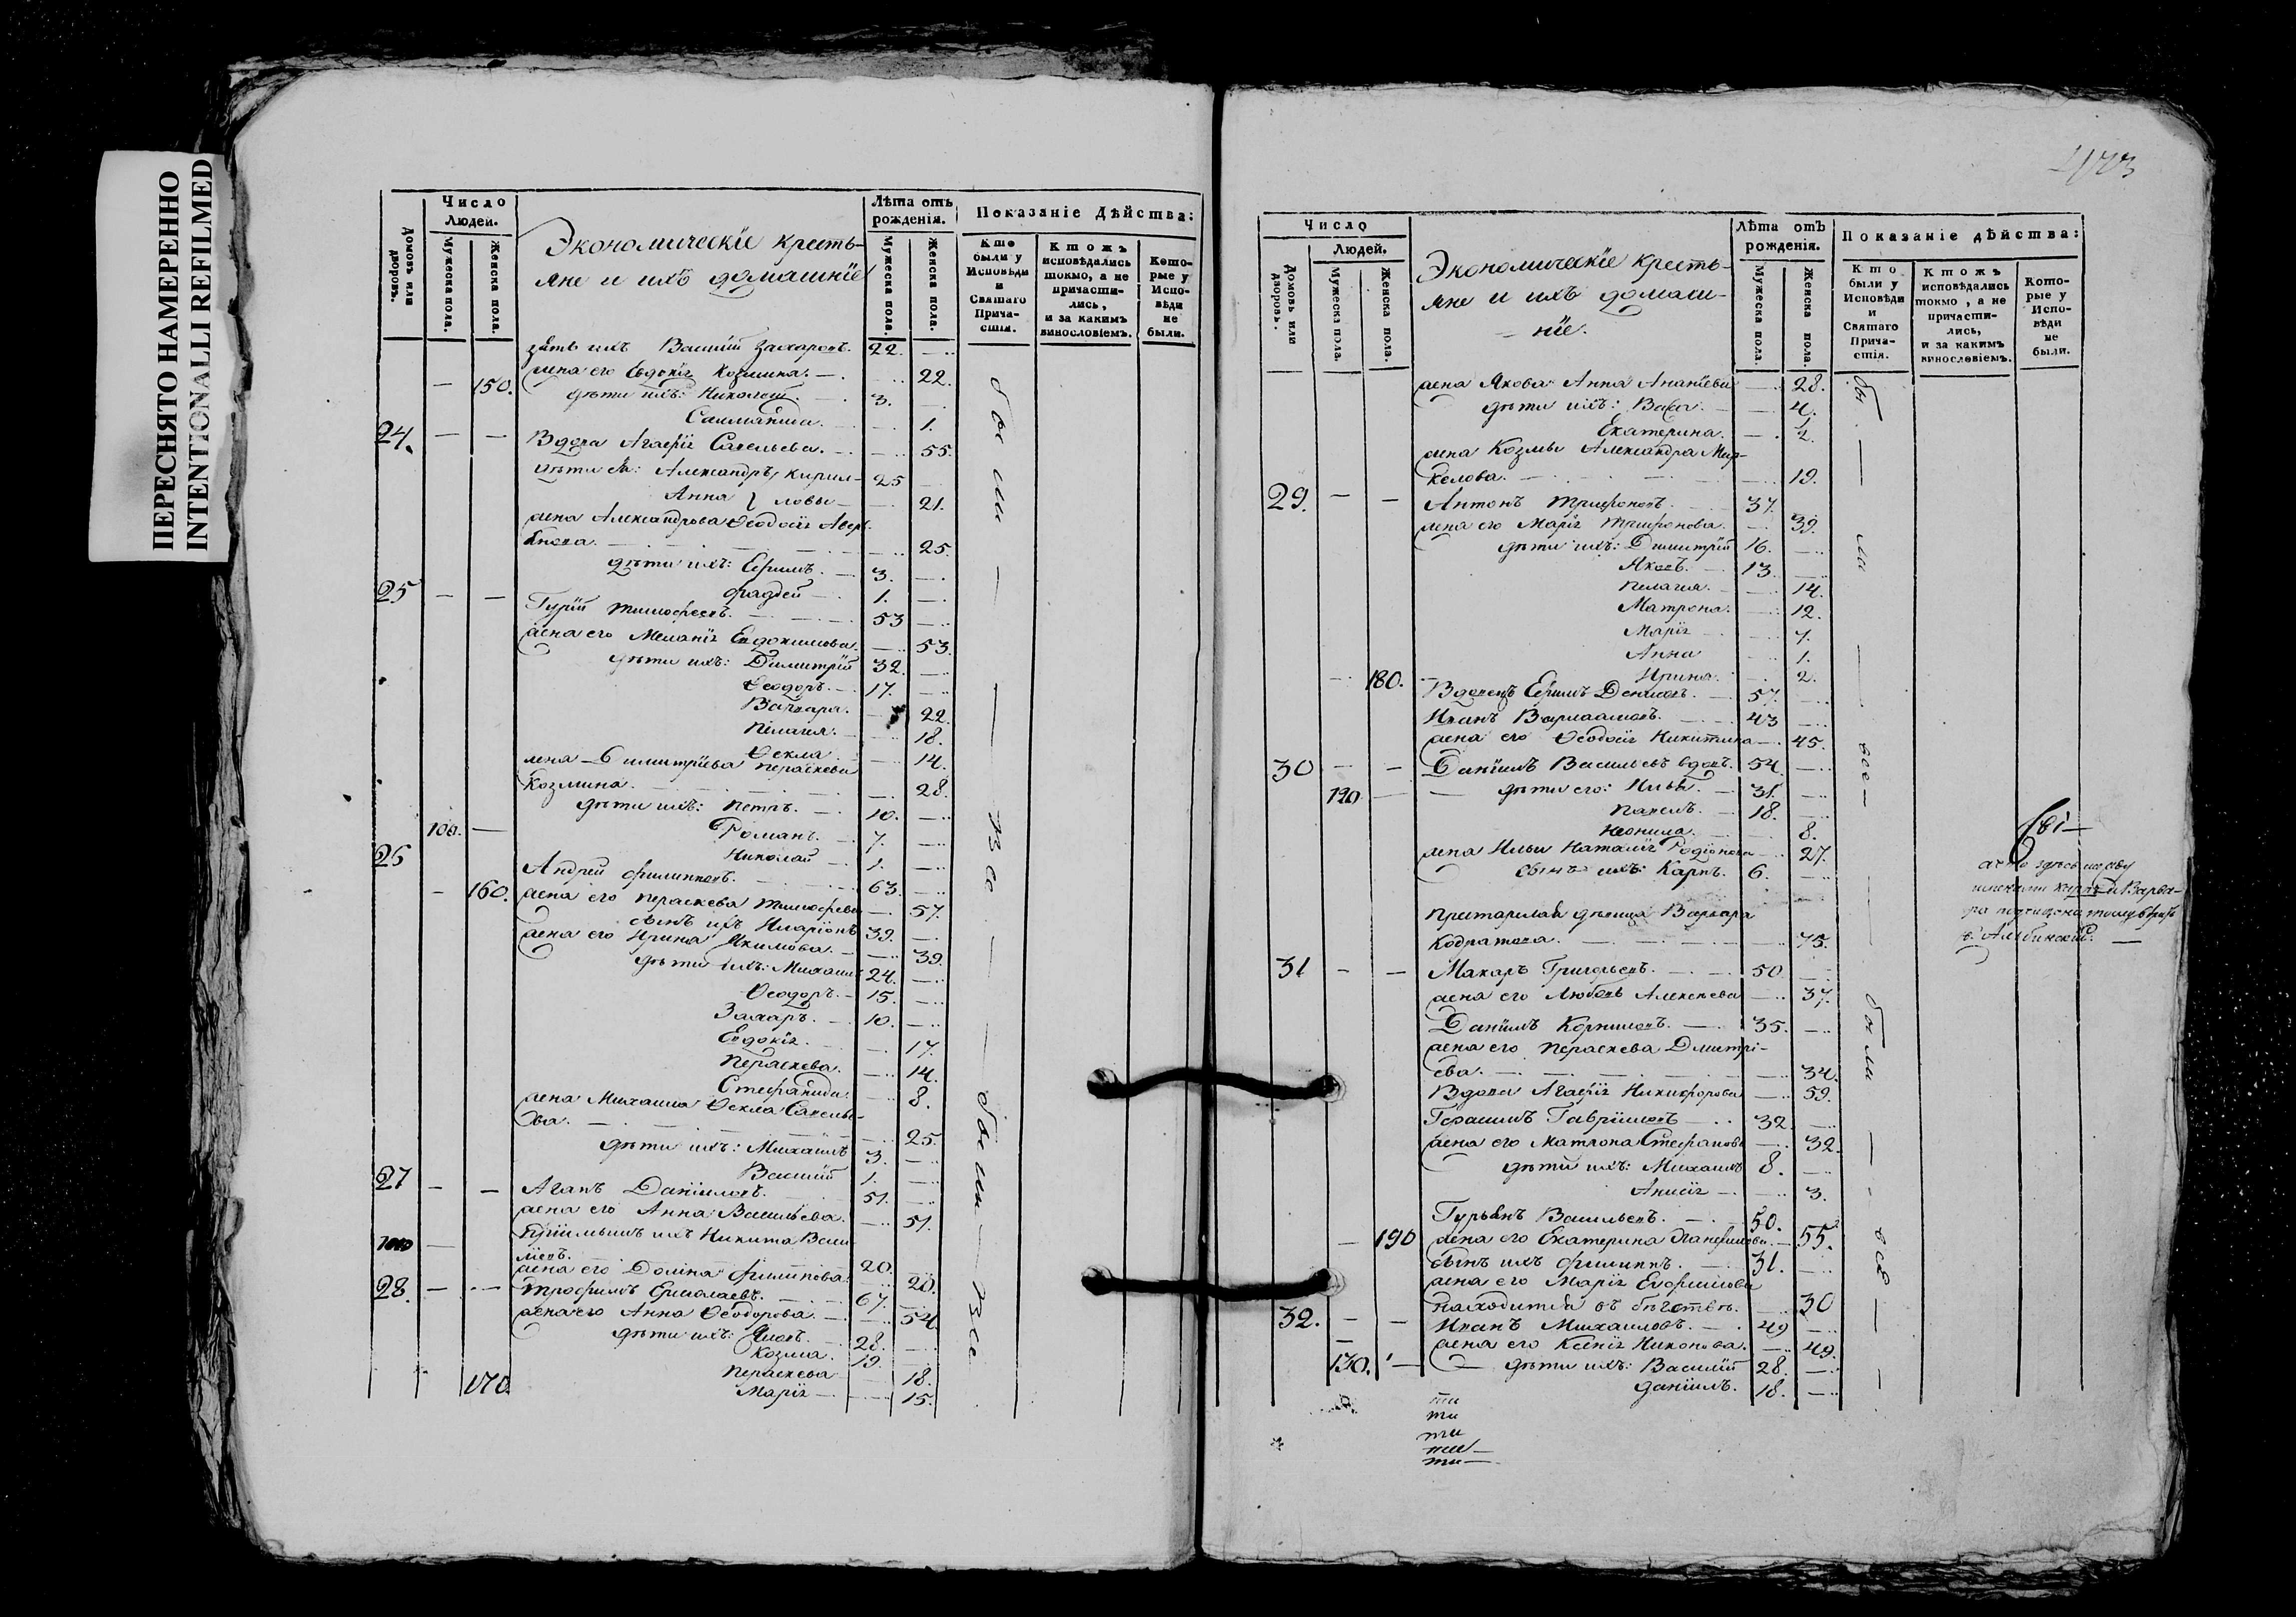 ПЕРЕСНЯТО НАМЕРЕННО
INTENTIONALLI REFILMED
Домовъ или дворовъ.
Число Людей.
Мужеска пола.
Женска пола.
Экономическіе кресть-
яне и ихъ домашніе
Лѣта отъ рожденія.
Мужеска пола.
Женска пола.
Показаніе Дѣйства:
Кто были у Исповѣди и Святаго Прича-стія.
Ктожъ исповѣдались токмо, а не причасти-лись, и за какимъ винословіемъ.
Кото-рые у Испо-вѣди не были.
зять ихъ Василій Захаровъ. 22.
150. жена его Евдокія Козмина. 22.
дѣти ихъ: Николай 3.
1.
24. Вдова Агафія Савельева. 55.
дѣти ея: Александръ Кирил- 25
Анна ловы 21.
жена Александрова Ѳеодосія Аверь-
янова. 25.
дѣти ихъ: Ефимъ. 3.
Фаддей 1.
25 Гурій Тимофеевъ. 53
жена его Меланія Евдокимова. 53.
дѣти ихъ: Димитрій 32.
Ѳеодоръ. 17.
Варвара. 22.
Пелагія. 18.
Ѳекла 14.
жена Димитріева Параскева
Козмина. 28.
дѣти ихъ: Петръ. 10.
100. Романъ. 7.
Николай 1.
26 Андрей Филипповъ. 63.
160. жена его Параскева Тимофеева 57.
сынъ ихъ Иларіонъ 39.
жена его Ирина Якимова. 39.
дѣти ихъ: Михаилъ 24.
Ѳеодоръ. 15.
Захаръ. 10.
Евдокія. 17.
Параскева. 14.
Стефанида. 8.
жена Михаила Ѳекла Савелье-
ва. 25.
дѣти ихъ: Михаилъ 3.
Василій 1.
27 Агапъ Даніиловъ. 51.
жена его Анна Васильева. 51.
пріимышъ ихъ Никита Васи-
ліевъ. 20.
жена его Домна Филипова 20.
28. Трофимъ Ермолаевъ. 67.
жена его Анна Ѳеодорова. 54.
дѣти ихъ: Яковъ. 28.
Козма. 19.
Параскева 18.
170. Марія 15.
были
— все —
были — все
Домовъ или дворовъ.
Число Людей.
Мужеска пола.
Женска пола.
Экономическіе кресть-
яне и ихъ домаш-
ніе.
Лѣта отъ рожденія.
Мужеска пола.
Женска пола.
Показаніе дѣйства:
Кто были у Исповѣди и Святаго Прича-стія.
Ктожъ исповѣдались токмо, а не причасти-лись, и за какимъ винословіемъ.
Кото-рые у Испо-вѣди не были.
жена Якова Анна Ананіева 28.
дѣти ихъ: 4.
Екатерина.
жена Козмы Александра Мар-
келова. 19.
29. Антонъ Трифоновъ. 37.
жена его Марія Трифонова. 39.
дѣти ихъ: Димитрій 16.
Яковъ. 13.
Пелагія. 14.
Матрона. 12.
Марія 7.
Анна 1.
180. Ирина. 2.
Вдовецъ Ефимъ Денисовъ. 57.
Иванъ Варлаамовъ. 43
жена его Ѳеодосія Никитина 45.
30 Даніилъ Васильевъ вдовъ. 54.
120 дѣти его: Илья. 31.
Павелъ. 18.
Неонила. 8.
жена Ильи Наталія Родіонова 27.
сынъ ихъ: Карпъ. 6.
престарелая дѣвица Варвара
Кодратова. 75.
31 Макаръ Григорьевъ. 50
жена его Любовь Алексѣева 37.
Даніилъ Корниловъ. 35.
жена его Параскева Дмитрі-
ева. 34.
Вдова Агафія Никифорова 59.
Герасимъ Гавриловъ 32.
жена его Матрона Стефанова 32.
дѣти ихъ: Михаилъ 8.
Анисія 3.
Гурьянъ Васильевъ. 50.
190 жена его Екатерина 55.
сынъ ихъ Филиппъ. 31.
жена его Марія Ефимова
находится въ бѣгствѣ. 30
32. Иванъ Михаиловъ. 49
жена его Ксенія Никонова. 49.
130. дѣти ихъ: Василій 28.
Даніилъ. 18.
бы — ли
все
были
— все —
ти
ти
ти
ти
ти